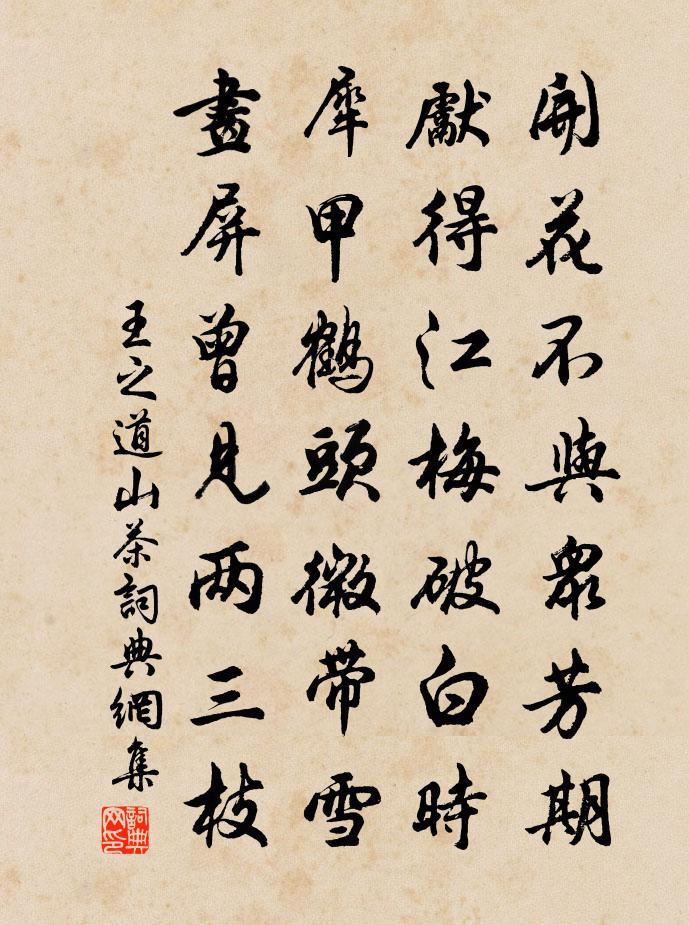 開花不與衆芳期
獻得江梅破白時
犀甲鶴頭微帶雪
畫屏曾見两三枝
王之道山茶詞典網集
詞典网印